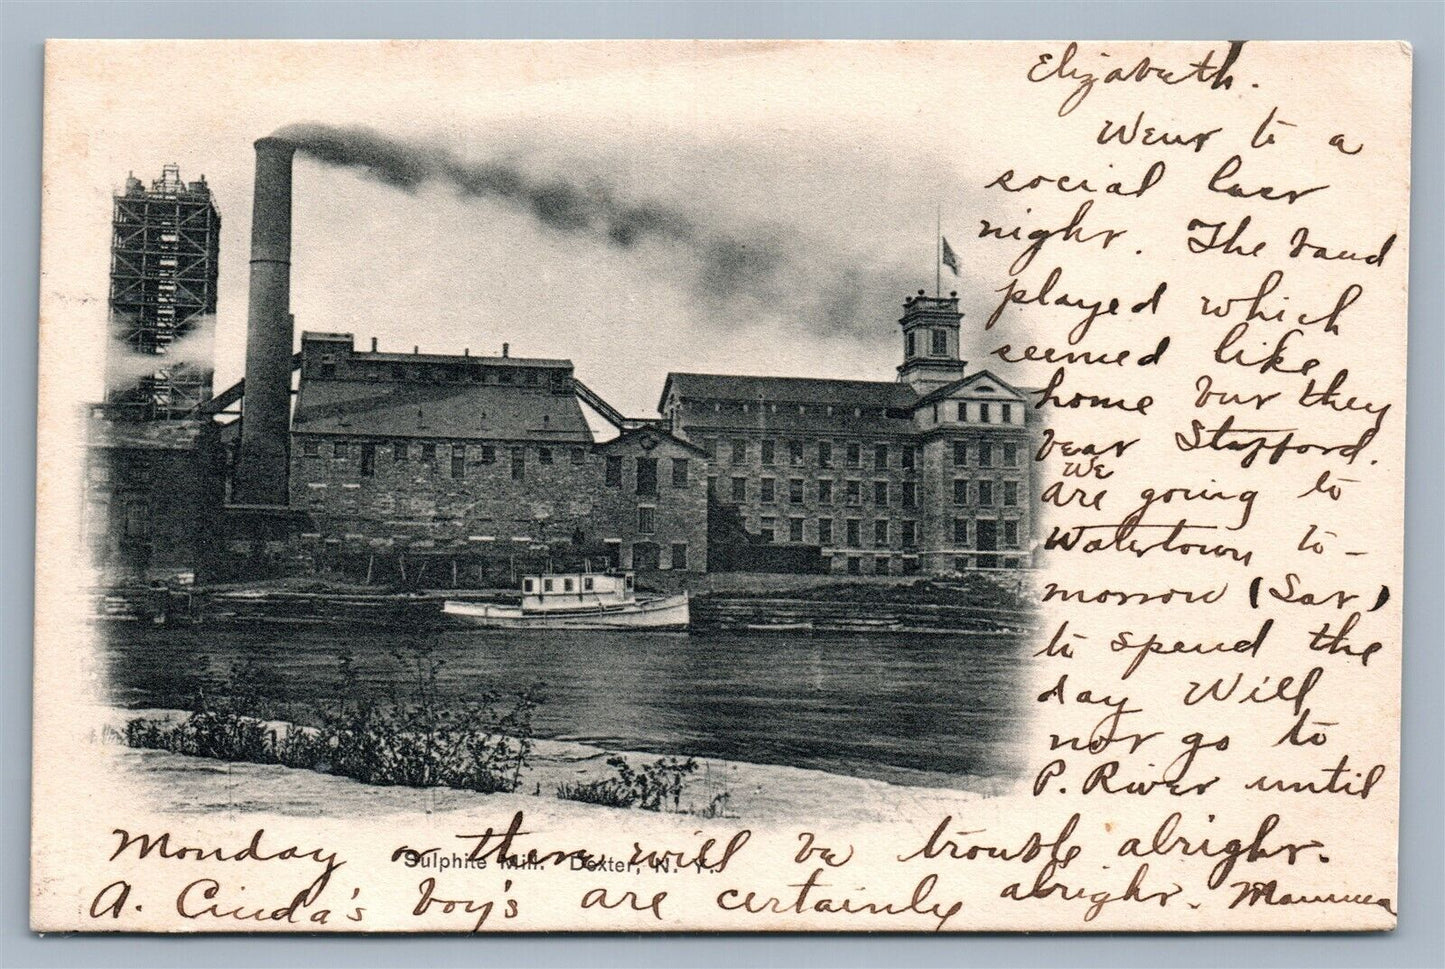 Elizabeth.
Went to a
social last
night. The band
played which
seemed like
home but they
beat Stafford.
We
are going to
Watertown to-
morrow (Sat)
to spend the
day Will
not go to
P. River until
Monday or there will be trouble alright.
Sulphite Mill. Dexter, N. Y.
A. Cinda's boy's are certainly alright. Mamma